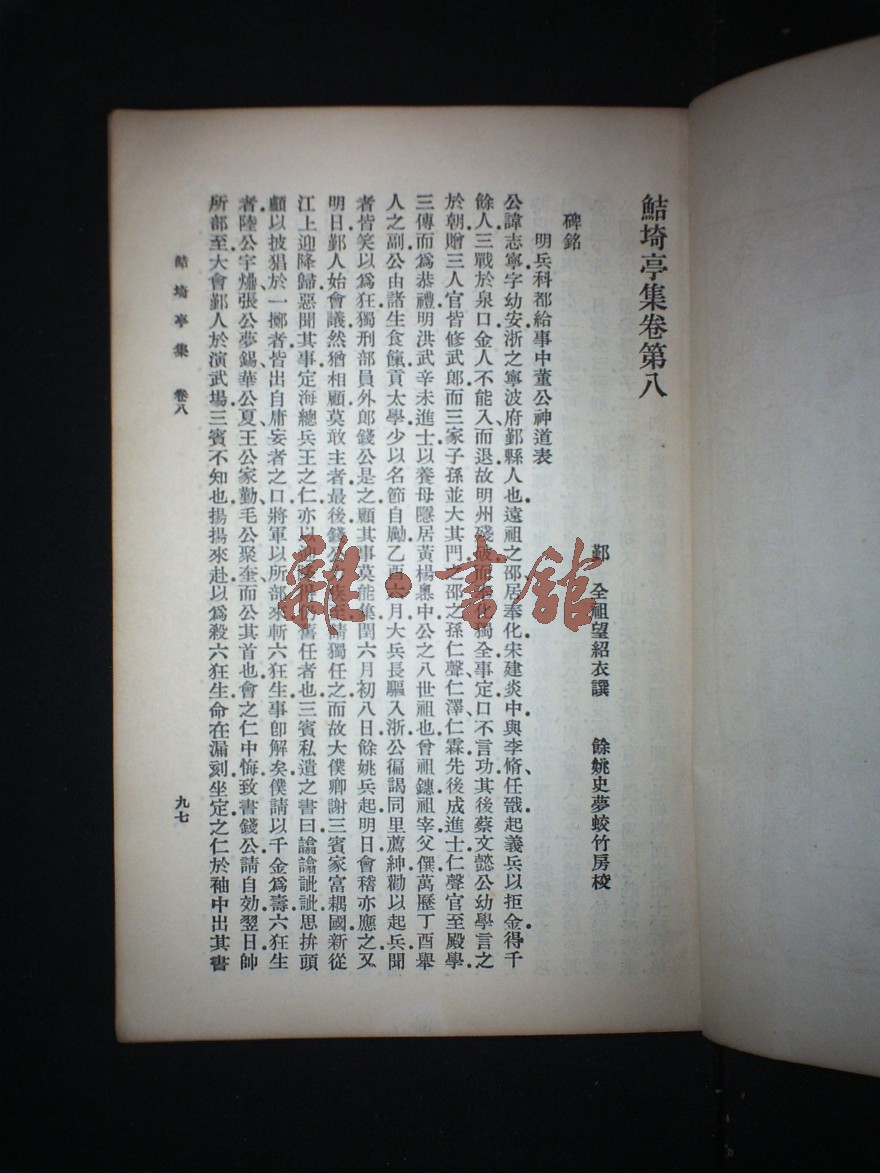 鮚埼亭集卷第八
鄞　全祖望紹衣譔　餘姚史夢蛟竹房校
碑銘
明兵科都給事中董公神道表
公諱志寧字幼安浙之寧波府鄞縣人也遠祖之邵居奉化宋建炎中與李脩任戩起義兵以拒金得千
餘人三戰於泉口金人不能入而退故明州殘破而奉化獨全事定口不言功其後蔡文懿公幼學言之
於朝贈三人官皆修武郎而三家子孫並大其門之邵之孫仁聲仁澤仁霖先後成進士仁聲官至殿學
三傳而爲恭禮明洪武辛未進士以養母隱居黃楊嶴中公之八世祖也曾祖鏸祖宰父僎萬歷丁酉舉
人之副公由諸生食餼貢太學少以名節自勵乙酉六月大兵長驅入浙公徧謁同里薦紳勸以起兵聞
者皆笑以爲狂獨刑部員外郎錢公是之顧其事莫能集閏六月初八日餘姚兵起明日會稽亦應之又
明日鄞人始會議然猶相顧莫敢主者最後錢公力疾至請獨任之而故太僕卿謝三賓家富耦國新從
江上迎降歸惡聞其事定海總兵王之仁亦以迎降得仍舊任者也三賓私遺之書曰譎譎訿訿思拚頭
顱以披猖於一擲者皆出自庸妄者之口將軍以所部來斬六狂生事卽解矣僕請以千金爲壽六狂生
者陸公宇𤊟張公夢錫華公夏王公家勤毛公聚奎而公其首也會之仁中悔致書錢公請自効翌日帥
所部至大會鄞人於演武場三賓不知也揚揚來赴以爲殺六狂生命在漏刻坐定之仁於袖中出其書
鮚埼亭集　卷八
九七
雜·書館